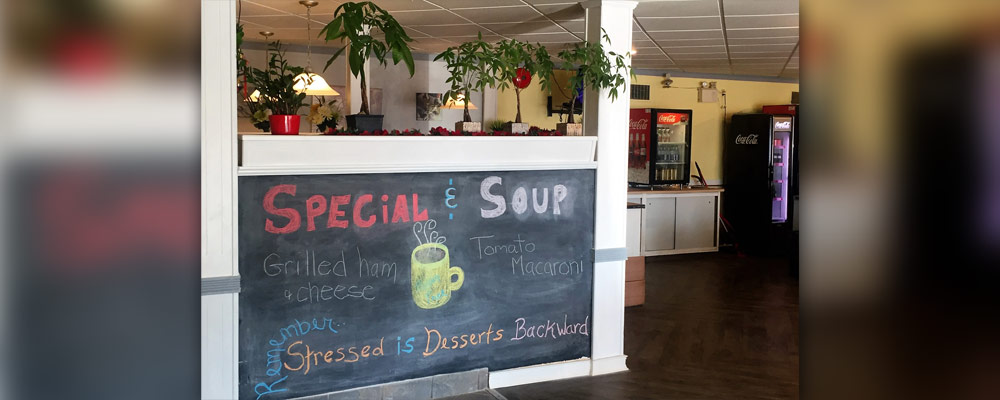 SPECiAL & SOUP
Grilled ham
& cheese
Tomato
Macaroni
Remember..
Stressed is Desserts Backward
Coca-Cola
Coca-Cola
Coca-Cola
Coca-Cola